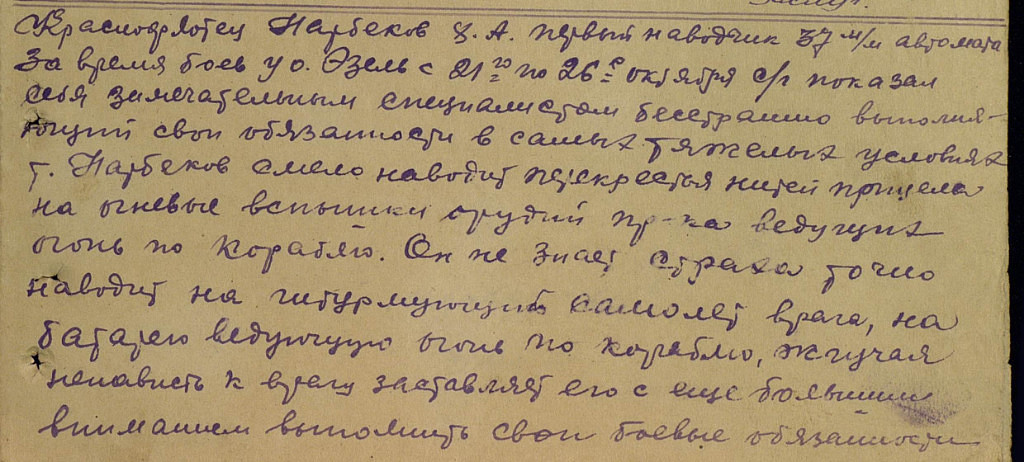 Краснофлотец Нарбеков З. А. первый наводчик 37 м/м автомата
За время боев у о. Эзель с 21го по 26е октября с/г показал
себя замечательным специалистом бесстрашно выполня-
ющий свои обязанности в самых тяжелых условиях
т. Нарбеков смело наводит перекрестья нитей прицела
на огневые вспышки орудий пр-ка ведущих
огонь по кораблю. Он не знает страха точно
наводит на штурмующий самолет врага, на
батарею ведующую огонь по кораблю, жгучая
ненависть к врагу заставляет его с еще большим
вниманием выполнить свои боевые обязанности